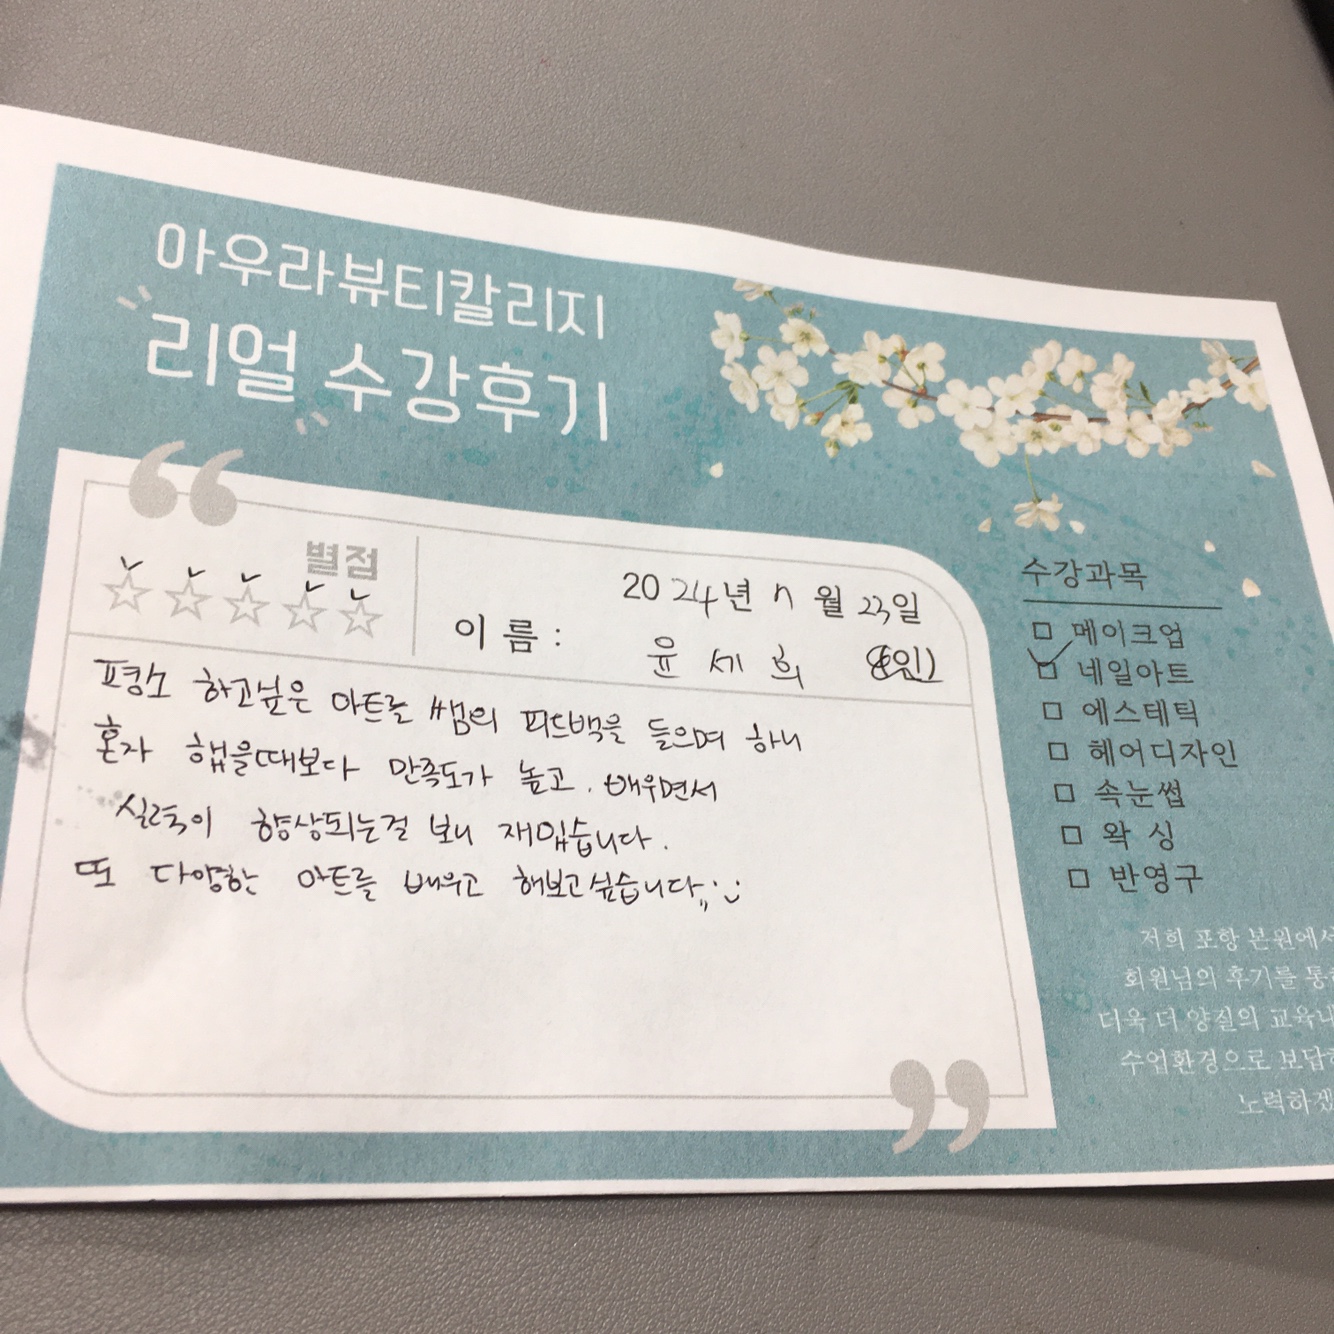 아우라뷰티칼리지
리얼 수강후기
별점
2024년 7월 23일
이름 : 윤세희
평소 하고싶은 아트를 쌤의 피드백을 들으며 하니
혼자 했을때보다 만족도가 높고. 배우면서
실력이 향상되는걸 보니 재밌습니다.
또 다양한 아트를 배우고 해보고싶습니다
수강과목
메이크업
네일아트
에스테틱
헤어디자인
속눈썹
왁싱
반영구
저희 포항 본원에서
회원님의 후기를
더욱 더 양질의
수업환경으로